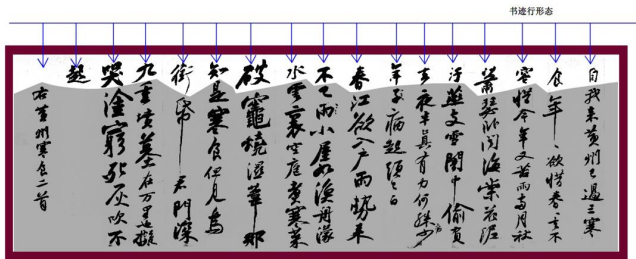 书迹行形态
自我来黄州已過三寒
食年〻欲惜春〻去不
容惜今年又苦雨兩月秋
蕭瑟卧聞海棠花泥
汙燕支雪闇中偷負
去夜半真有力何殊少
年子病起頭已白
春江欲入户雨勢来
不已雨小屋如漁舟濛〻
水雲裏空庖煮寒菜
破竈燒濕葦那
知是寒食但見烏
銜帋君門深
九重墳墓在万里也擬
哭塗窮死灰吹不
起
右黄州寒食二首